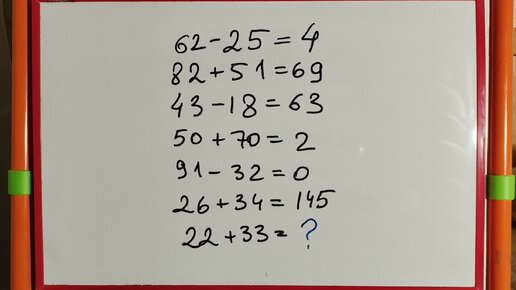 62-25=4
82+51=69
43-18=63
50+70=2
91-32=0
26+34=145
22+33=?